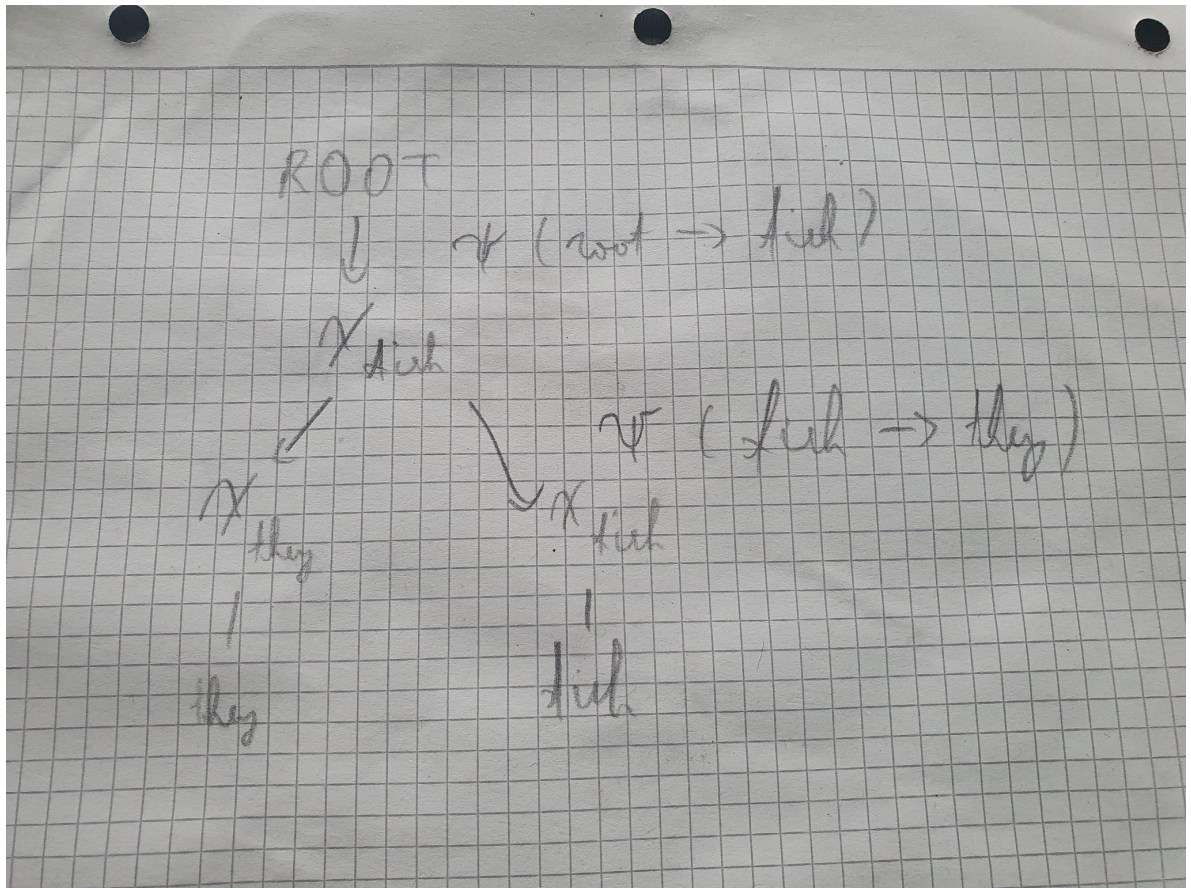 ROOT
ψ (root → fish)
X fish
ψ (fish → they)
X they X fish
they fish